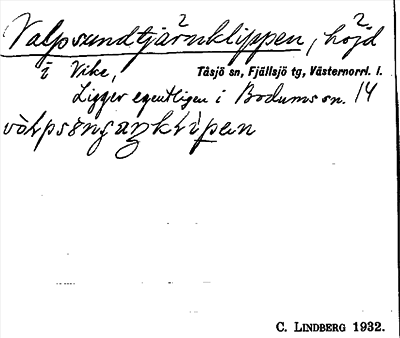 Valpsundtjärnklippen, höjd
i Vike, Tåsjö sn, Fjällsjö tg, Västernorrl. l.
Ligger egentligen i Bodums sn. 14
C. LINDBERG 1932.